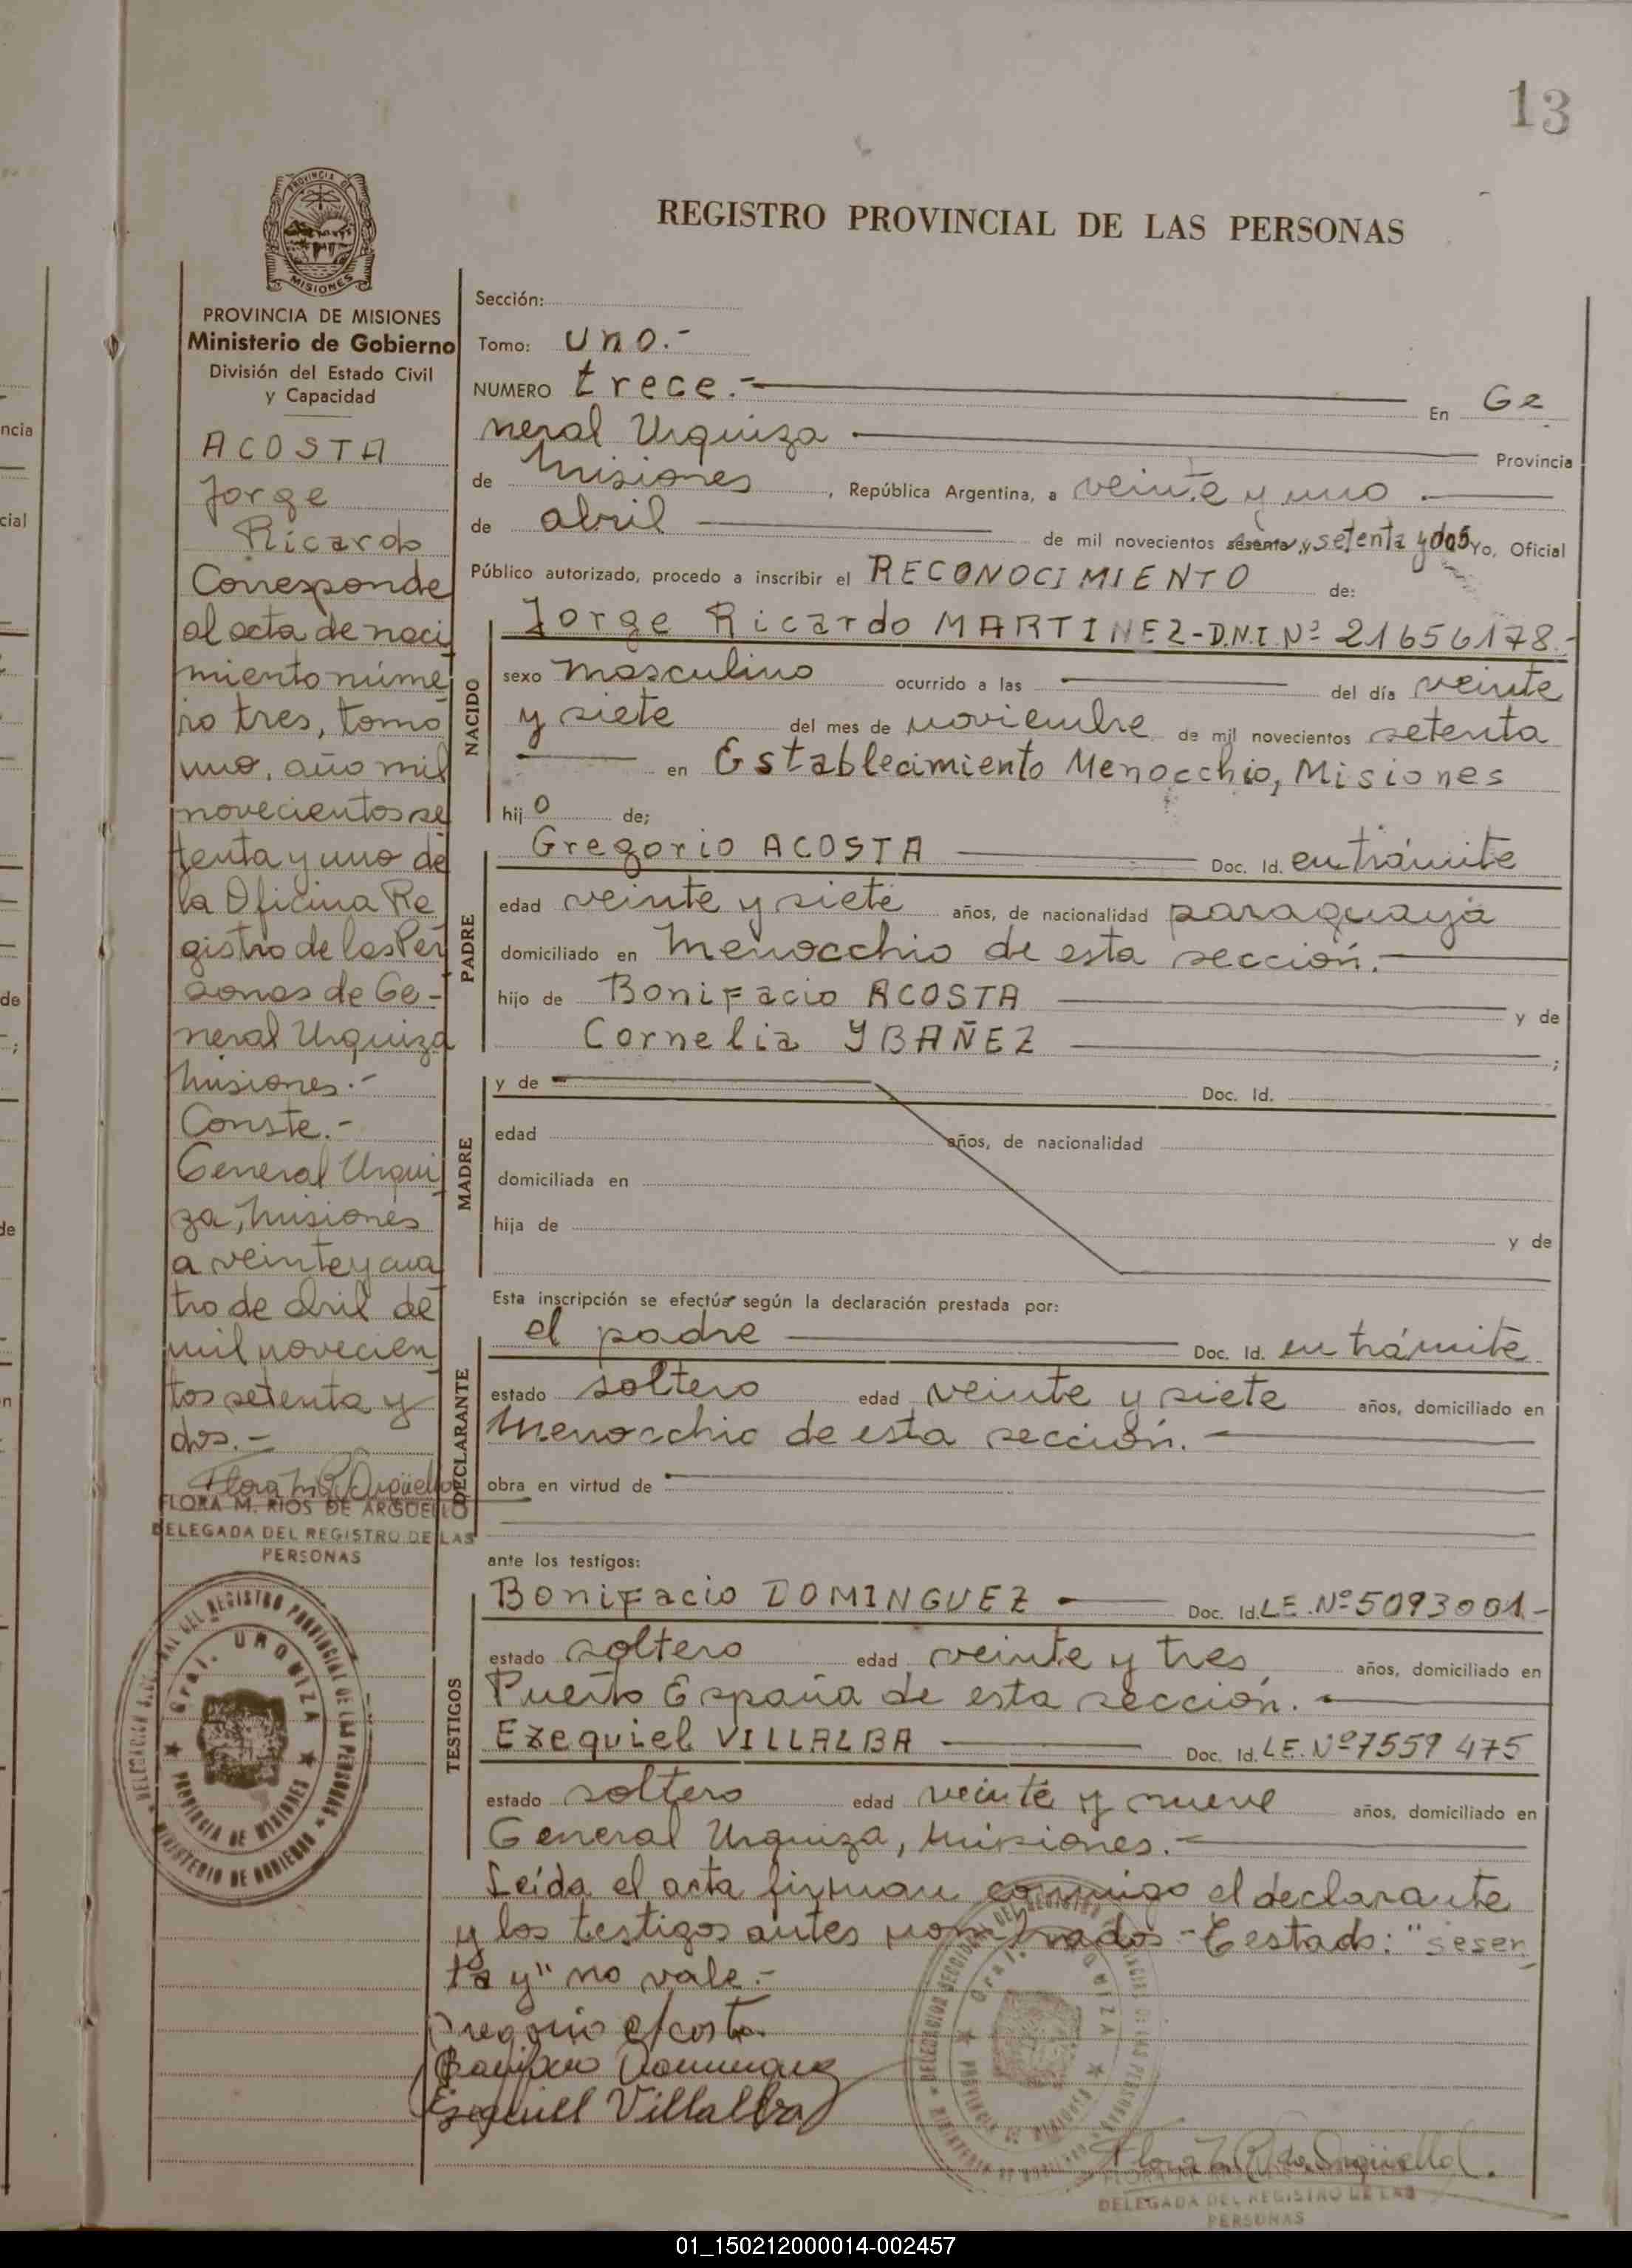 13
REGISTRO PROVINCIAL DE LAS PERSONAS
PROVINCIA DE MISIONES
PROVINCIA DE MISIONES
Ministerio de Gobierno
División del Estado Civil
y Capacidad
ACOSTA
Jorge
Ricardo
Corresponde
al acta de naci
miento núme
ro tres, tomo
uno, año mil
novecientos se
tenta y uno de
la Oficina Re
gistro de las Per
sonas de Ge-
neral Urquiza
Misiones.-
Conste.-
General Urqui
za, Misiones
a veinte y cua
tro de abril de
mil novecien
tos setenta y
dos.-
Flora M. R. de Argüello
FLORA M. RIOS DE ARGÜELLO
DELEGADA DEL REGISTRO DE LAS
PERSONAS
DEL REGISTRO PROVINCIAL DE LAS PERSONAS
Gral. URQUIZA
PROVINCIA DE MISIONES
MINISTERIO DE GOBIERNO
Sección:
Tomo: uno.-
NUMERO trece.- En Ge
neral Urquiza Provincia
de Misiones, República Argentina, a veinte y uno
de abril de mil novecientos sesenta y setenta y dos Yo, Oficial
Público autorizado, procedo a inscribir el RECONOCIMIENTO de:
NACIDO
Jorge Ricardo MARTINEZ-D.N.I. Nº 21656178.-
sexo masculino ocurrido a las del día veinte
y siete del mes de noviembre de mil novecientos setenta
en Establecimiento Menocchio, Misiones
hijo de;
PADRE
Gregorio ACOSTA Doc. Id. en trámite
edad veinte y siete años, de nacionalidad paraguaya
domiciliado en Menocchio de esta sección.-
hijo de Bonifacio ACOSTA y de
Cornelia YBAÑEZ ;
MADRE
y de Doc. Id.
edad años, de nacionalidad
domiciliada en
hija de y de
Esta inscripción se efectúa según la declaración prestada por:
DECLARANTE
el padre Doc. Id. en trámite
estado soltero edad veinte y siete años, domiciliado en
Menocchio de esta sección.
obra en virtud de
ante los testigos:
TESTIGOS
Bonifacio DOMINGUEZ Doc. Id. L.E. Nº 5093001-
estado soltero edad veinte y tres años, domiciliado en
Puerto España de esta sección.
Ezequiel VILLALBA Doc. Id. L.E. Nº 7559475
estado soltero edad veinte y nueve años, domiciliado en
General Urquiza, Misiones.-
Leída el acta firman conmigo el declarante
y los testigos antes nombrados - Testado: "sesen
ta y" no vale.-
Gregorio Acosta
Bonifacio Dominguez
Ezequiel Villalba
Flora M. R. de Argüello
DELEGADA DEL REGISTRO DE LAS
PERSONAS
01_150212000014-002457